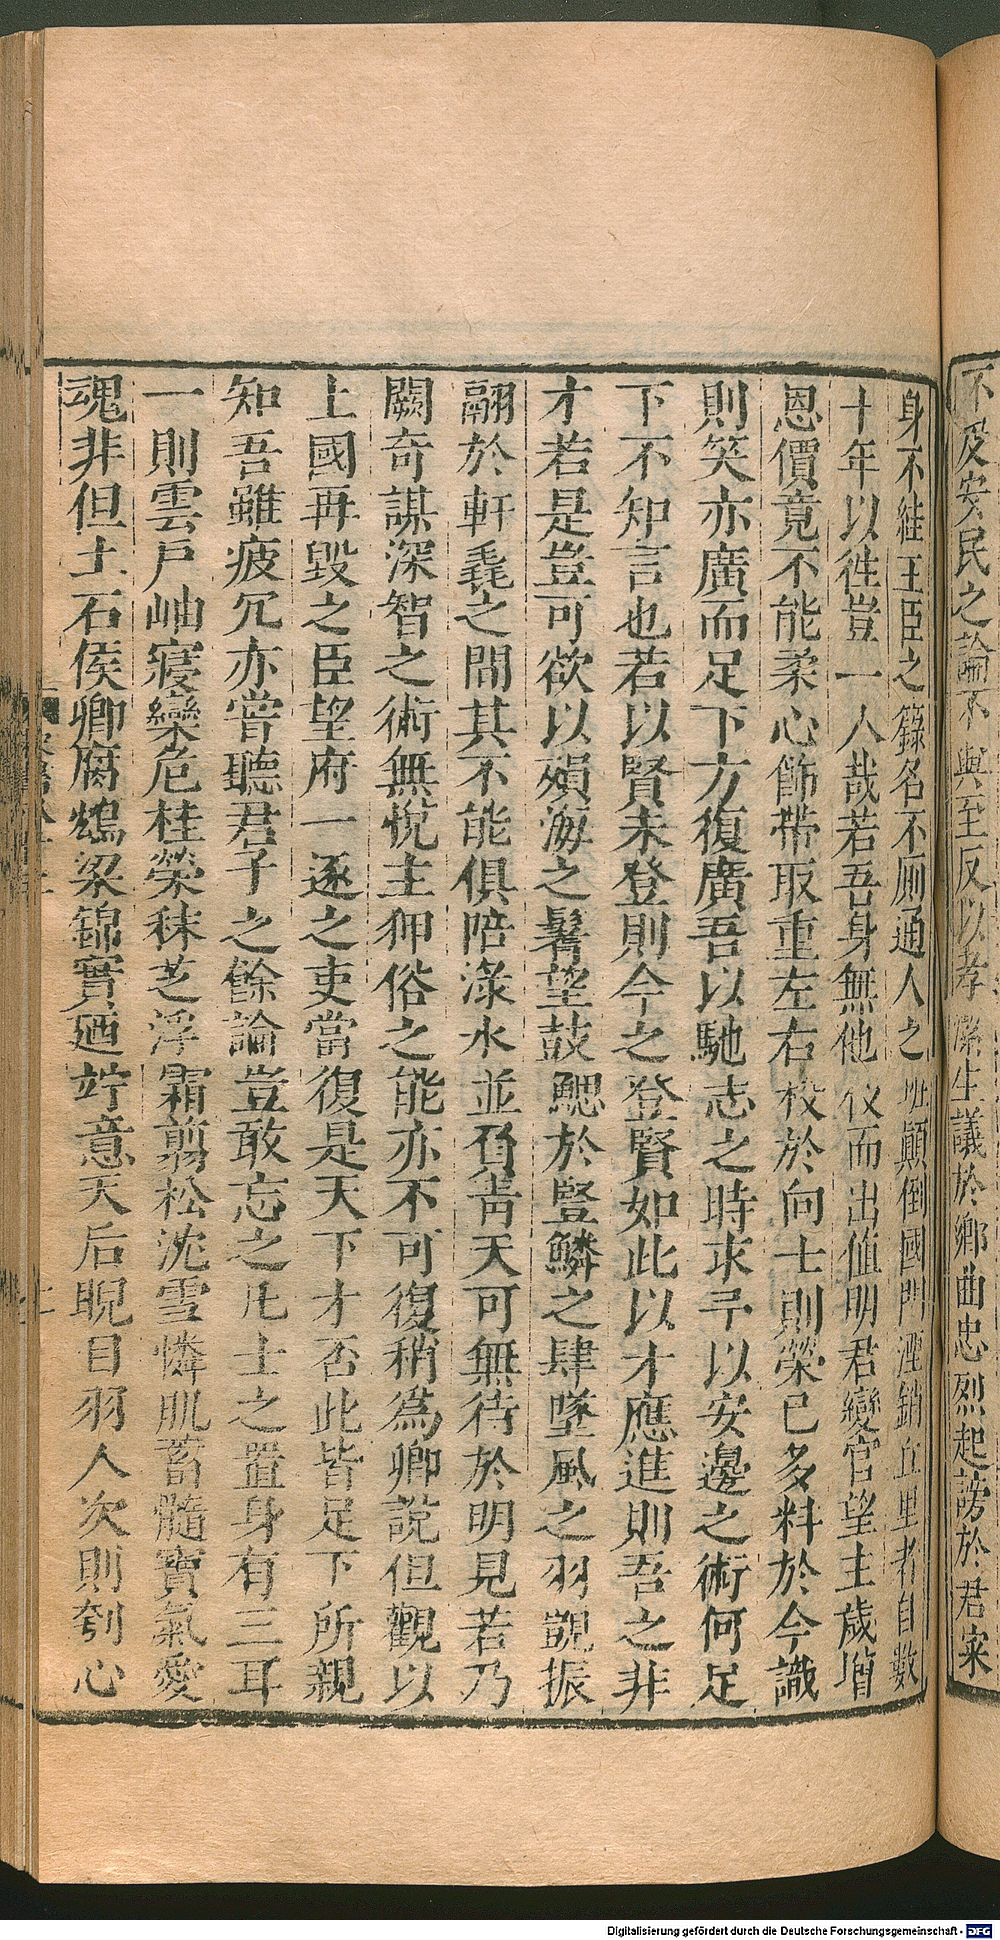 不及安民之論不與至反以孝潔生議於鄉曲忠烈起謗於君寀
身不絓王臣之籙名不廁通人之班顛倒國門湮銷丘里者自數
十年以徃豈一人哉若吾身無他伎而出值明君變官望主歲增
恩價竟不能柔心飾帶取重左右校於向士則榮已多料於今識
則笑亦廣而足下方復廣吾以馳志之時求予以安邊之術何足
下不知言也若以賢未登則今之登賢如此以才應進則吾之非
才若是豈可欲以殞海之髾望鼓鰓於豎鱗之肆墜風之羽覬振
翮於軒毳之間其不能俱陪淥水並負青天可無待於明見若乃
闕奇謀深智之術無悅主狎俗之能亦不可復稍爲卿說但觀以
上國再毀之臣望府一逐之吏當復是天下才否此皆足下所親
知吾雖疲冗亦嘗聽君子之餘論豈敢忘之凡士之置身有三耳
一則雲戶岫寢欒危桂榮秣芝浮霜剪松沈雪憐肌蓄髓寶氣愛
魂非但土石侯卿腐鴆梁錦實廼竚意天后睨目羽人次則刳心
Digitalisierung gefördert durch die Deutsche Forschungsgemeinschaft - DFG